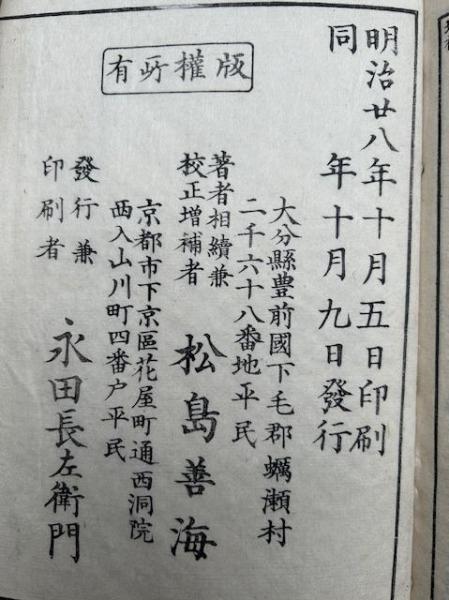 明治廿八年十月五日印刷
同年十月九日發行
版權所有
大分縣豊前國下毛郡蠣瀬村
二千六十八番地平民
著者相續兼
校正增補者
松島善海
京都市下京區花屋町通西洞院
西入山川町四番户平民
發行兼
印刷者
永田長左衛門